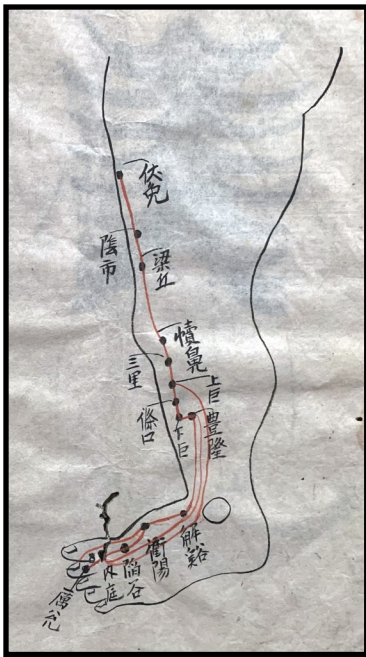 伏兔
陰市
梁丘
犢鼻
三里
上巨
條口
下巨
豊隆
解谿
衝陽
陷谷
内庭
厲兌